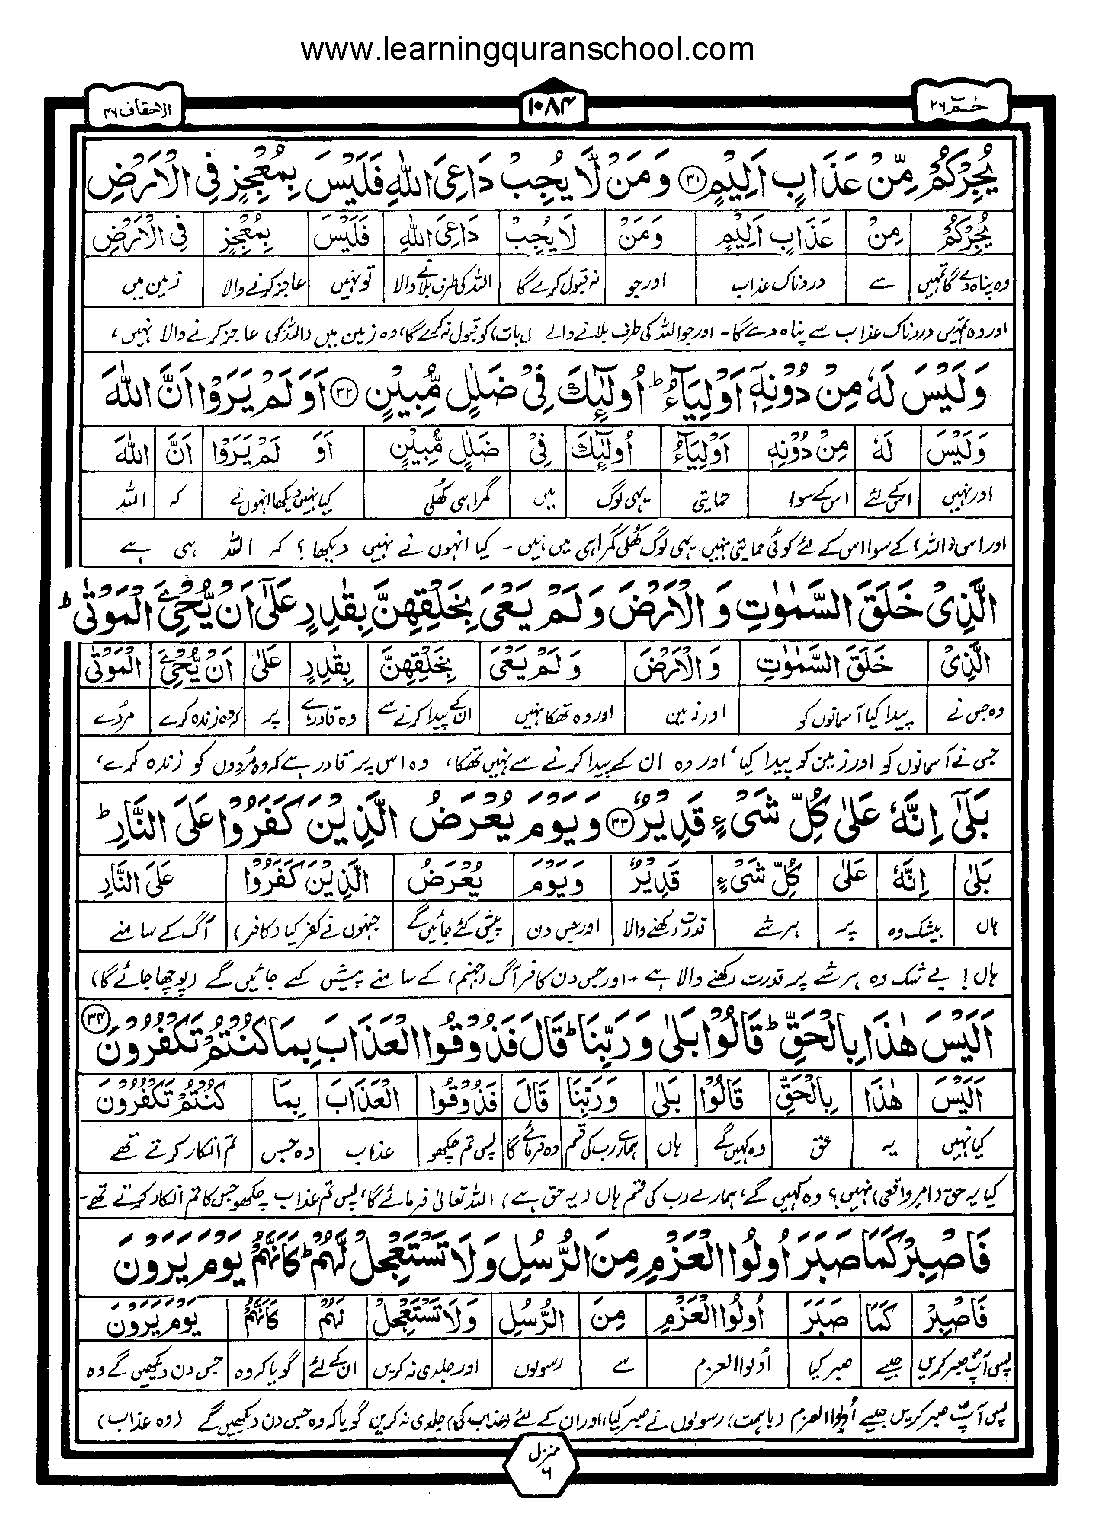 www.learningquranschool.com
حٰمٓ ٢٦
١٠٨٤
الاحقاف ٤٦
يُجِرْكُمْ مِّنْ عَذَابٍ اَلِيْمٍ ﴿٣١﴾ وَمَنْ لَّا يُجِبْ دَاعِىَ اللّٰهِ فَلَيْسَ بِمُعْجِزٍ فِى الْاَرْضِ
يُجِرْكُمْ مِنْ عَذَابٍ اَلِيْمٍ وَمَنْ لَا يُجِبْ دَاعِىَ اللّٰهِ فَلَيْسَ بِمُعْجِزٍ فِى الْاَرْضِ
وہ پناہ دے گا تمہیں سے دردناک عذاب اور جو نہ قبول کرے گا اللہ کی طرف بلانے والا تو نہیں عاجز کرنے والا زمین میں
اور وہ تمہیں دردناک عذاب سے پناہ دے گا۔ اور جو اللہ کی طرف بلانے والے (کی بات) کو قبول نہ کرے گا، وہ زمین میں (اللہ کو) عاجز کرنے والا نہیں،
وَلَيْسَ لَهٗ مِنْ دُوْنِهٖٓ اَوْلِيَآءُ ؕ اُولٰٓئِكَ فِىْ ضَلٰلٍ مُّبِيْنٍ ﴿٣٢﴾ اَوَلَمْ يَرَوْا اَنَّ اللّٰهَ
وَلَيْسَ لَهٗ مِنْ دُوْنِهٖٓ اَوْلِيَآءُ اُولٰٓئِكَ فِىْ ضَلٰلٍ مُّبِيْنٍ اَوَ لَمْ يَرَوْا اَنَّ اللّٰهَ
اور نہیں اسکے لئے اس کے سوا حمایتی یہی لوگ میں گمراہی کھلی کیا نہیں دیکھا انہوں نے کہ اللہ
اور اس (اللہ) کے سوا اس کے لئے کوئی حمایتی نہیں یہی لوگ کھلی گمراہی میں ہیں۔ کیا انہوں نے نہیں دیکھا؟ کہ اللہ ہی ہے
الَّذِىْ خَلَقَ السَّمٰوٰتِ وَالْاَرْضَ وَلَمْ يَعْىَ بِخَلْقِهِنَّ بِقٰدِرٍ عَلٰٓى اَنْ يُّحْۦِىَ الْمَوْتٰى ؕ
الَّذِىْ خَلَقَ السَّمٰوٰتِ وَالْاَرْضَ وَلَمْ يَعْىَ بِخَلْقِهِنَّ بِقٰدِرٍ عَلٰى اَنْ يُّحْۦِىَ الْمَوْتٰى
وہ جس نے پیدا کیا آسمانوں کو اور زمین اور وہ تھکا نہیں ان کے پیدا کرنے سے وہ قادر ہے پر کہ وہ زندہ کرے مُردے
جس نے آسمانوں کو اور زمین کو پیدا کیا، اور وہ ان کے پیدا کرنے سے نہیں تھکا، وہ اس پر قادر ہے کہ وہ مُردوں کو زندہ کرے،
بَلٰٓى اِنَّهٗ عَلٰى كُلِّ شَىْءٍ قَدِيْرٌ ﴿٣٣﴾ وَيَوْمَ يُعْرَضُ الَّذِيْنَ كَفَرُوْا عَلَى النَّارِ ؕ
بَلٰى اِنَّهٗ عَلٰى كُلِّ شَىْءٍ قَدِيْرٌ وَيَوْمَ يُعْرَضُ الَّذِيْنَ كَفَرُوْا عَلَى النَّارِ
ہاں بیشک وہ پر ہر شے قدرت رکھنے والا اور جس دن پیش کئے جائیں گے جنہوں نے کفر کیا (کافر) آگ کے سامنے
ہاں! بے شک وہ ہر شے پر قدرت رکھنے والا ہے۔ اور جس دن کافر آگ (جہنم) کے سامنے پیش کیے جائیں گے (پوچھا جائے گا)
اَلَيْسَ هٰذَا بِالْحَقِّ ؕ قَالُوْا بَلٰى وَرَبِّنَا ؕ قَالَ فَذُوْقُوا الْعَذَابَ بِمَا كُنْتُمْ تَكْفُرُوْنَ ﴿٣٤﴾
اَلَيْسَ هٰذَا بِالْحَقِّ قَالُوْا بَلٰى وَرَبِّنَا قَالَ فَذُوْقُوا الْعَذَابَ بِمَا كُنْتُمْ تَكْفُرُوْنَ
کیا نہیں یہ حق وہ کہیں گے ہاں ہمارے رب کی قسم وہ فرمائے گا پس تم چکھو عذاب وہ جس تم انکار کرتے تھے
کیا یہ حق (امر واقعی) نہیں؟ وہ کہیں گے، ہمارے رب کی قسم ہاں (یہ حق ہے)، اللہ تعالیٰ فرمائے گا، پس تم عذاب چکھو جس کا تم انکار کرتے تھے۔
فَاصْبِرْ كَمَا صَبَرَ اُولُوا الْعَزْمِ مِنَ الرُّسُلِ وَلَا تَسْتَعْجِلْ لَّهُمْ ؕ كَاَنَّهُمْ يَوْمَ يَرَوْنَ
فَاصْبِرْ كَمَا صَبَرَ اُولُوا الْعَزْمِ مِنَ الرُّسُلِ وَلَا تَسْتَعْجِلْ لَهُمْ كَاَنَّهُمْ يَوْمَ يَرَوْنَ
پس آپؐ صبر کریں جیسے صبر کیا اُولوا العزم سے رسولوں اور جلدی نہ کریں ان کے لئے گویا کہ وہ جس دن دیکھیں گے وہ
پس آپؐ صبر کریں جیسے اُولوا العزم (باہمت) رسولوں نے صبر کیا، اور ان کے لئے (عذاب کی) جلدی نہ کریں گویا کہ وہ جس دن دیکھیں گے (وہ عذاب)
منزل ٦